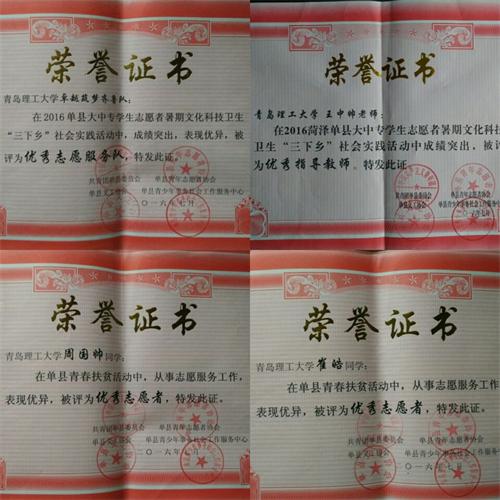 荣誉证书
青岛理工大学卓越筑梦齐鲁队：
在2016单县大中专学生志愿者暑期文化科技卫生
“三下乡”社会实践活动中，成绩突出，表现优异，被
评为优秀志愿服务队，特发此证。
共青团单县委员会 单县青年志愿者协会
单县义工协会 单县青少年事务社会工作服务中心
二〇一六年七月
荣誉证书
青岛理工大学 王中帅老师：
在2016菏泽单县大中专学生志愿者暑期文化科技
卫生“三下乡”社会实践活动中成绩突出，表现优异，
被评为优秀指导教师。特发此证。
共青团单县委员会 单县青年志愿者协会
单县义工协会 单县青少年事务社会工作服务中心
二〇一六年七月
荣誉证书
青岛理工大学周国帅同学：
在单县青春扶贫活动中，从事志愿服务工作，
表现优异，被评为优秀志愿者，特发此证。
共青团单县委员会 单县青年志愿者协会
单县义工协会 单县青少年事务社会工作服务中心
二〇一六年七月
荣誉证书
青岛理工大学崔皓同学：
在单县青春扶贫活动中，从事志愿服务工作，
表现优异，被评为优秀志愿者，特发此证。
共青团单县委员会 单县青年志愿者协会
单县义工协会 单县青少年事务社会工作服务中心
二〇一六年七月